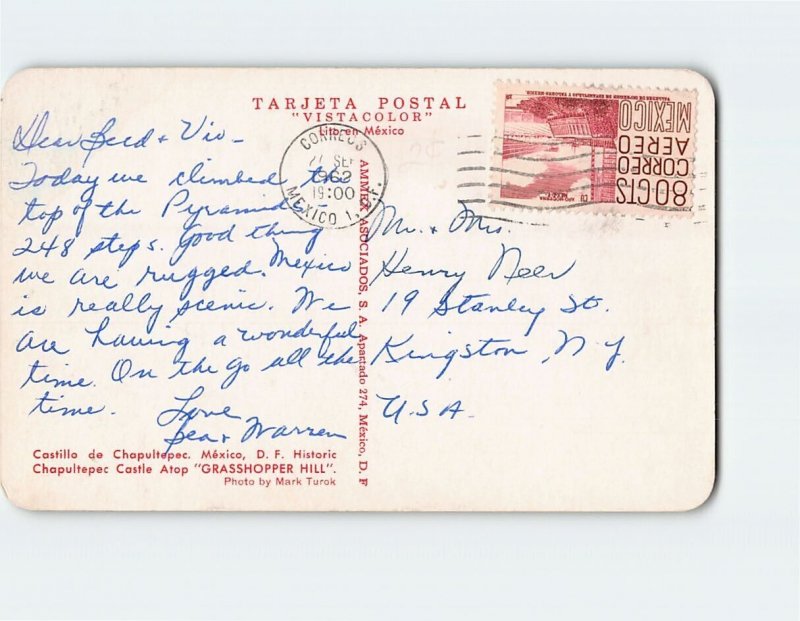 TARJETA POSTAL
"VISTACOLOR"
Lito en México
Dear Reed + Vio -
Today we climbed the
top of the Pyramid
248 steps. Good thing
we are rugged. Mexico
is really scenic. We
are having a wonderful
time. On the go all the
time.
Love
Bea + Warren
Castillo de Chapultepec. México, D. F. Historic
Chapultepec Castle Atop "GRASSHOPPER HILL".
Photo by Mark Turok
AMMEX ASOCIADOS, S. A. Apartado 274, México, D. F
CORREOS
27 SEP
1962
19:00
MEXICO 1, D.F.
80 CTS
CORREO
AEREO
MEXICO
Mr. + Mrs.
Henry Neer
19 Stanley St.
Kingston, N.Y.
U.S.A.